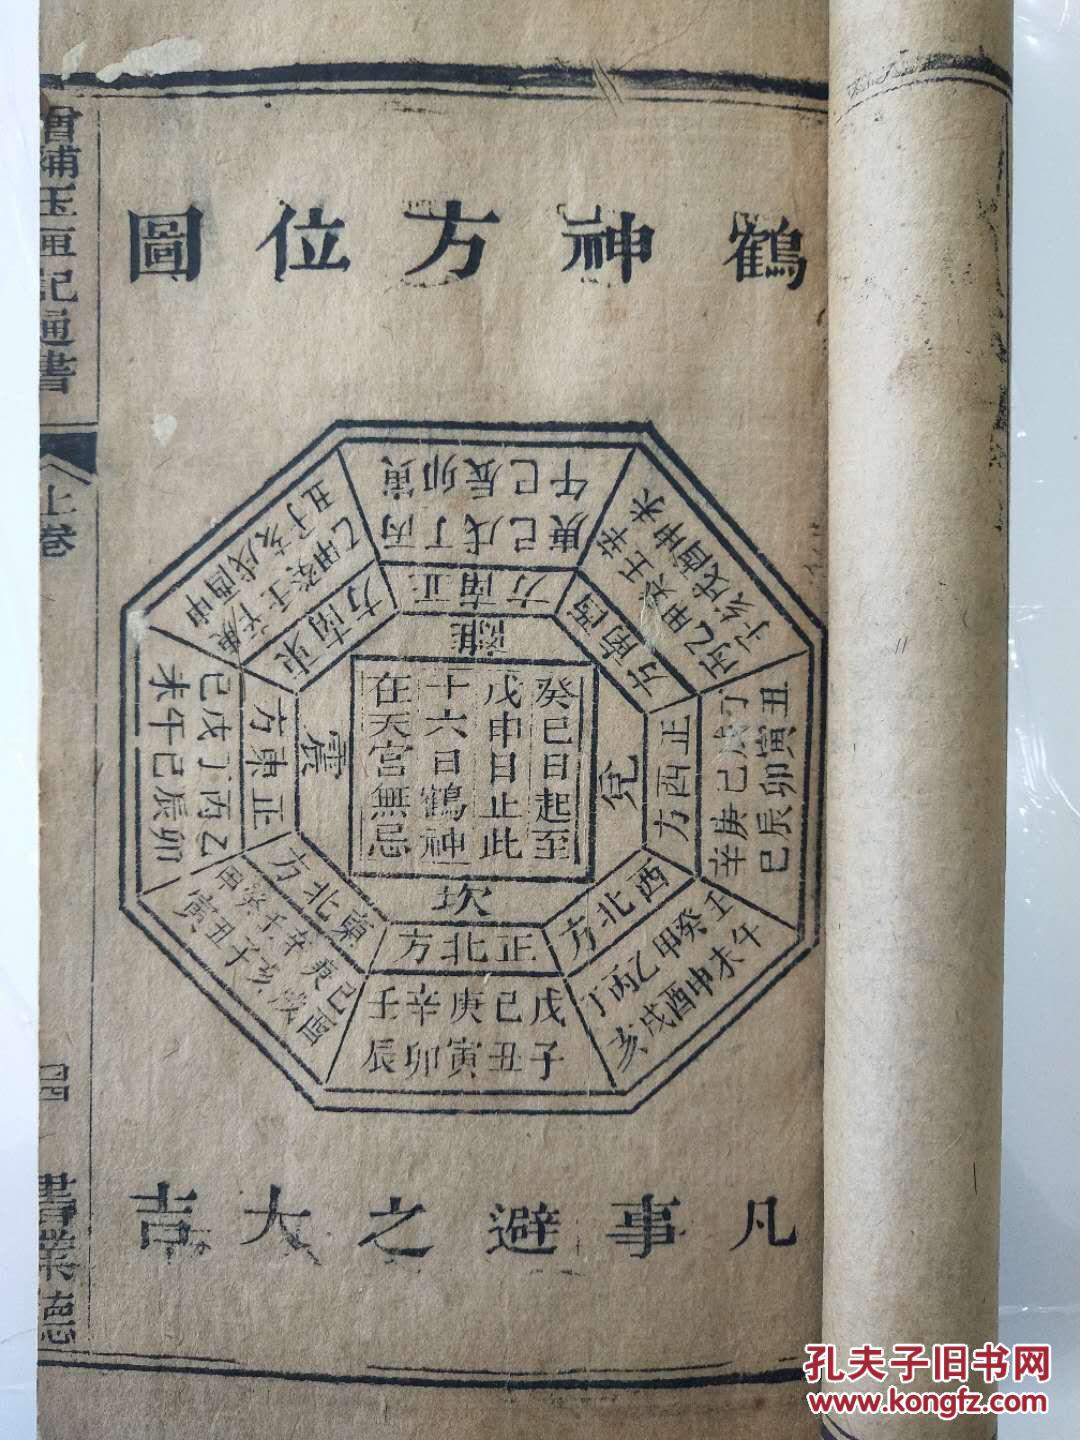 鶴神方位圖
丙丁戊己庚
寅卯辰巳午
正南方
離
辛壬癸甲乙丙
未申酉戌亥子
西南方
丁戊己庚辛
丑寅卯辰巳
正西方
兌
壬癸甲乙丙丁
午未申酉戌亥
西北方
戊己庚辛壬
子丑寅卯辰
正北方
坎
己庚辛壬癸甲
酉戌亥子丑寅
東北方
乙丙丁戊己
卯辰巳午未
正東方
震
庚辛壬癸甲乙
申酉戌亥子丑
東南方
癸巳日起至
戊申日止此
十六日鶴神
在天宮無忌
凡事避之大吉
增補玉匣記通書
上卷
四
書業德
孔夫子旧书网
www.kongfz.com